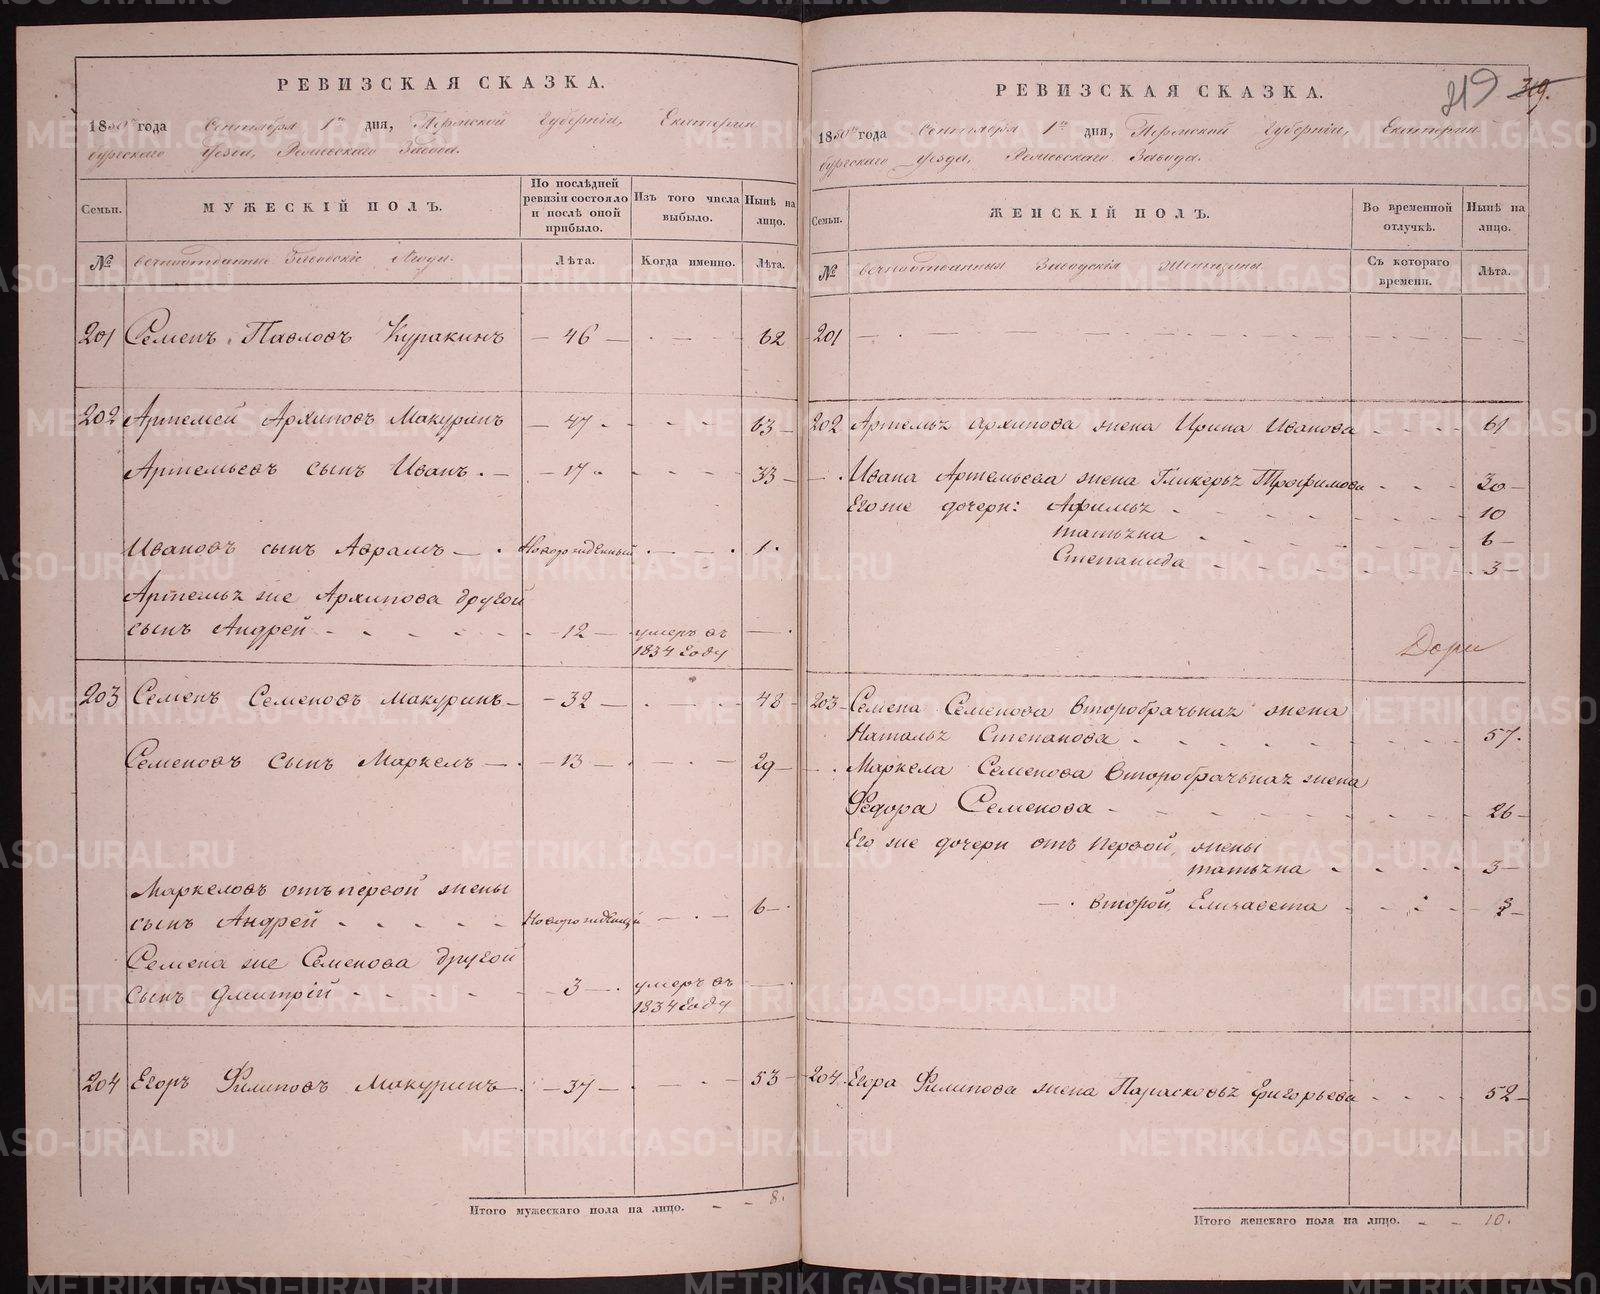 РЕВИЗСКАЯ СКАЗКА.
1850го года Сентября 1го дня, Пермской Губернiи, Екатерин
бургскаго Уѣзда, Завода.
Семьи.
МУЖЕСКIЙ ПОЛЪ.
По послѣдней ревизiи состояло и послѣ оной прибыло.
Изъ того числа выбыло.
Нынѣ на лицо.
№
вечноотданные Заводскiе Люди.
Лѣта.
Когда именно.
Лѣта.
201 Семенъ Павловъ Куракинъ — 46 — 62
202 Артемей Архиповъ Макуринъ — 47 63
Артемьевъ сынъ Иванъ. — 17 33
Ивановъ сынъ Аврамъ — Новорожденный 1.
Артемья же Архипова другой
сынъ Андрей 12 — умеръ въ
1834 году
203 Семенъ Семеновъ Макуринъ — 32 48
Семеновъ сынъ Маркелъ — 13 — 29
Маркеловъ отъ первой жены
сынъ Андрей Новорожденный 6
Семена же Семенова другой
сынъ Дмитрiй 3 — умеръ въ
1834 году
204 Егоръ Филиповъ Макуринъ — 37 — 53
Итого мужескаго пола на лицо. 8.
219 319.
РЕВИЗСКАЯ СКАЗКА.
1850го года Сентября 1го дня, Пермской Губернiи, Екатерин
бургскаго Уѣзда, Завода.
Семьи.
ЖЕНСКIЙ ПОЛЪ.
Во временной отлучкѣ.
Нынѣ на лицо.
№
вечноотданныя Заводскiя женщины.
Съ котораго времени.
Лѣта.
201
202 Артемья Архипова жена Ирина Иванова 61
Ивана Артемьева жена Гликерья Трофимова 30
Его же дочери: Афимья 10
Татьяна 6
Степанида 3
203 Семена Семенова второбрачьная жена
Наталья Степанова 57.
Маркела Семенова второбрачьная жена
Федора Семенова 26
Его же дочери отъ первой жены
Татьяна 3
второй, Елизавета
204. Егора Филипова жена Парасковья Григорьева 52
Итого женскаго пола на лицо. 10.
METRIKI.GASO-URAL.RU